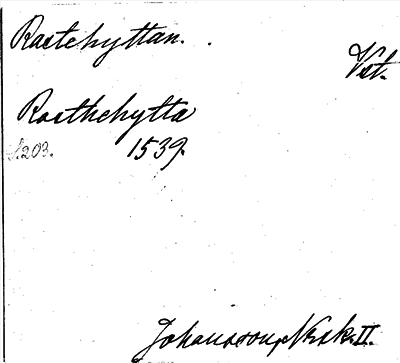 Rastehyttan.
Vst.
Rasthehytta
S. 203. 1539.
Johansson, Nksk. II.